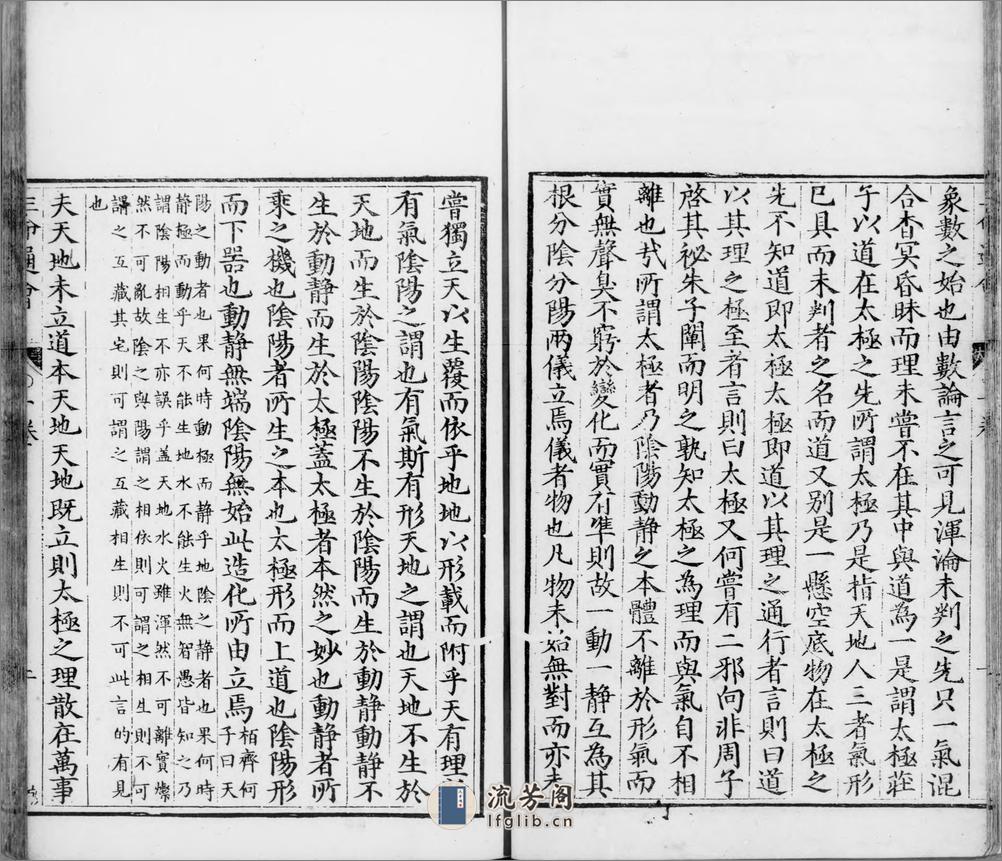 象數之始也由數論言之可見渾淪未判之先只一氣混
合杳冥昏昧而理未嘗不在其中與道為一是謂太極莊
子以道在太極之先所謂太極乃是指天地人三者氣形
已具而未判者之名而道又別是一懸空底物在太極之
先不知道即太極太極即道以其理之通行者言則曰道
以其理之極至者言則曰太極又何嘗有二邪向非周子
啓其祕朱子闡而明之孰知太極之為理而與氣自不相
離也㢤所謂太極者乃陰陽動静之本體不離於形氣而
實無聲臭不窮於變化而實有凖則故一動一静互為其
根分陰分陽兩儀立焉儀者物也凡物未始無對而亦未
嘗獨立天以生覆而依乎地地以形載而附乎天有理
有氣陰陽之謂也有氣斯有形天地之謂也天地不生於
天地而生於陰陽陰陽不生於陰陽而生於動静動静不
生於動静而生於太極蓋太極者本然之妙也動静者所
乘之機也陰陽者所生之本也太極形而上道也陰陽形
而下噐也動静無端陰陽無始此造化所由立焉
栢齊何
子曰天
陽之動者也果何時動極而静乎地陰之静者也果何時
静極而動乎天不能生地水不能生火無智愚皆知之乃
謂陰陽相生不亦誤乎蓋天地水火雖渾然不可離實燦
然不可亂故陰之與陽謂之相依則可謂之相生則不可
謂之互藏其宅則可謂之互藏相生則不可此言的有見
也
夫天地未立道本天地天地既立則太極之理散在萬事
三命通會
卷
流芳阁
lfglib.cn